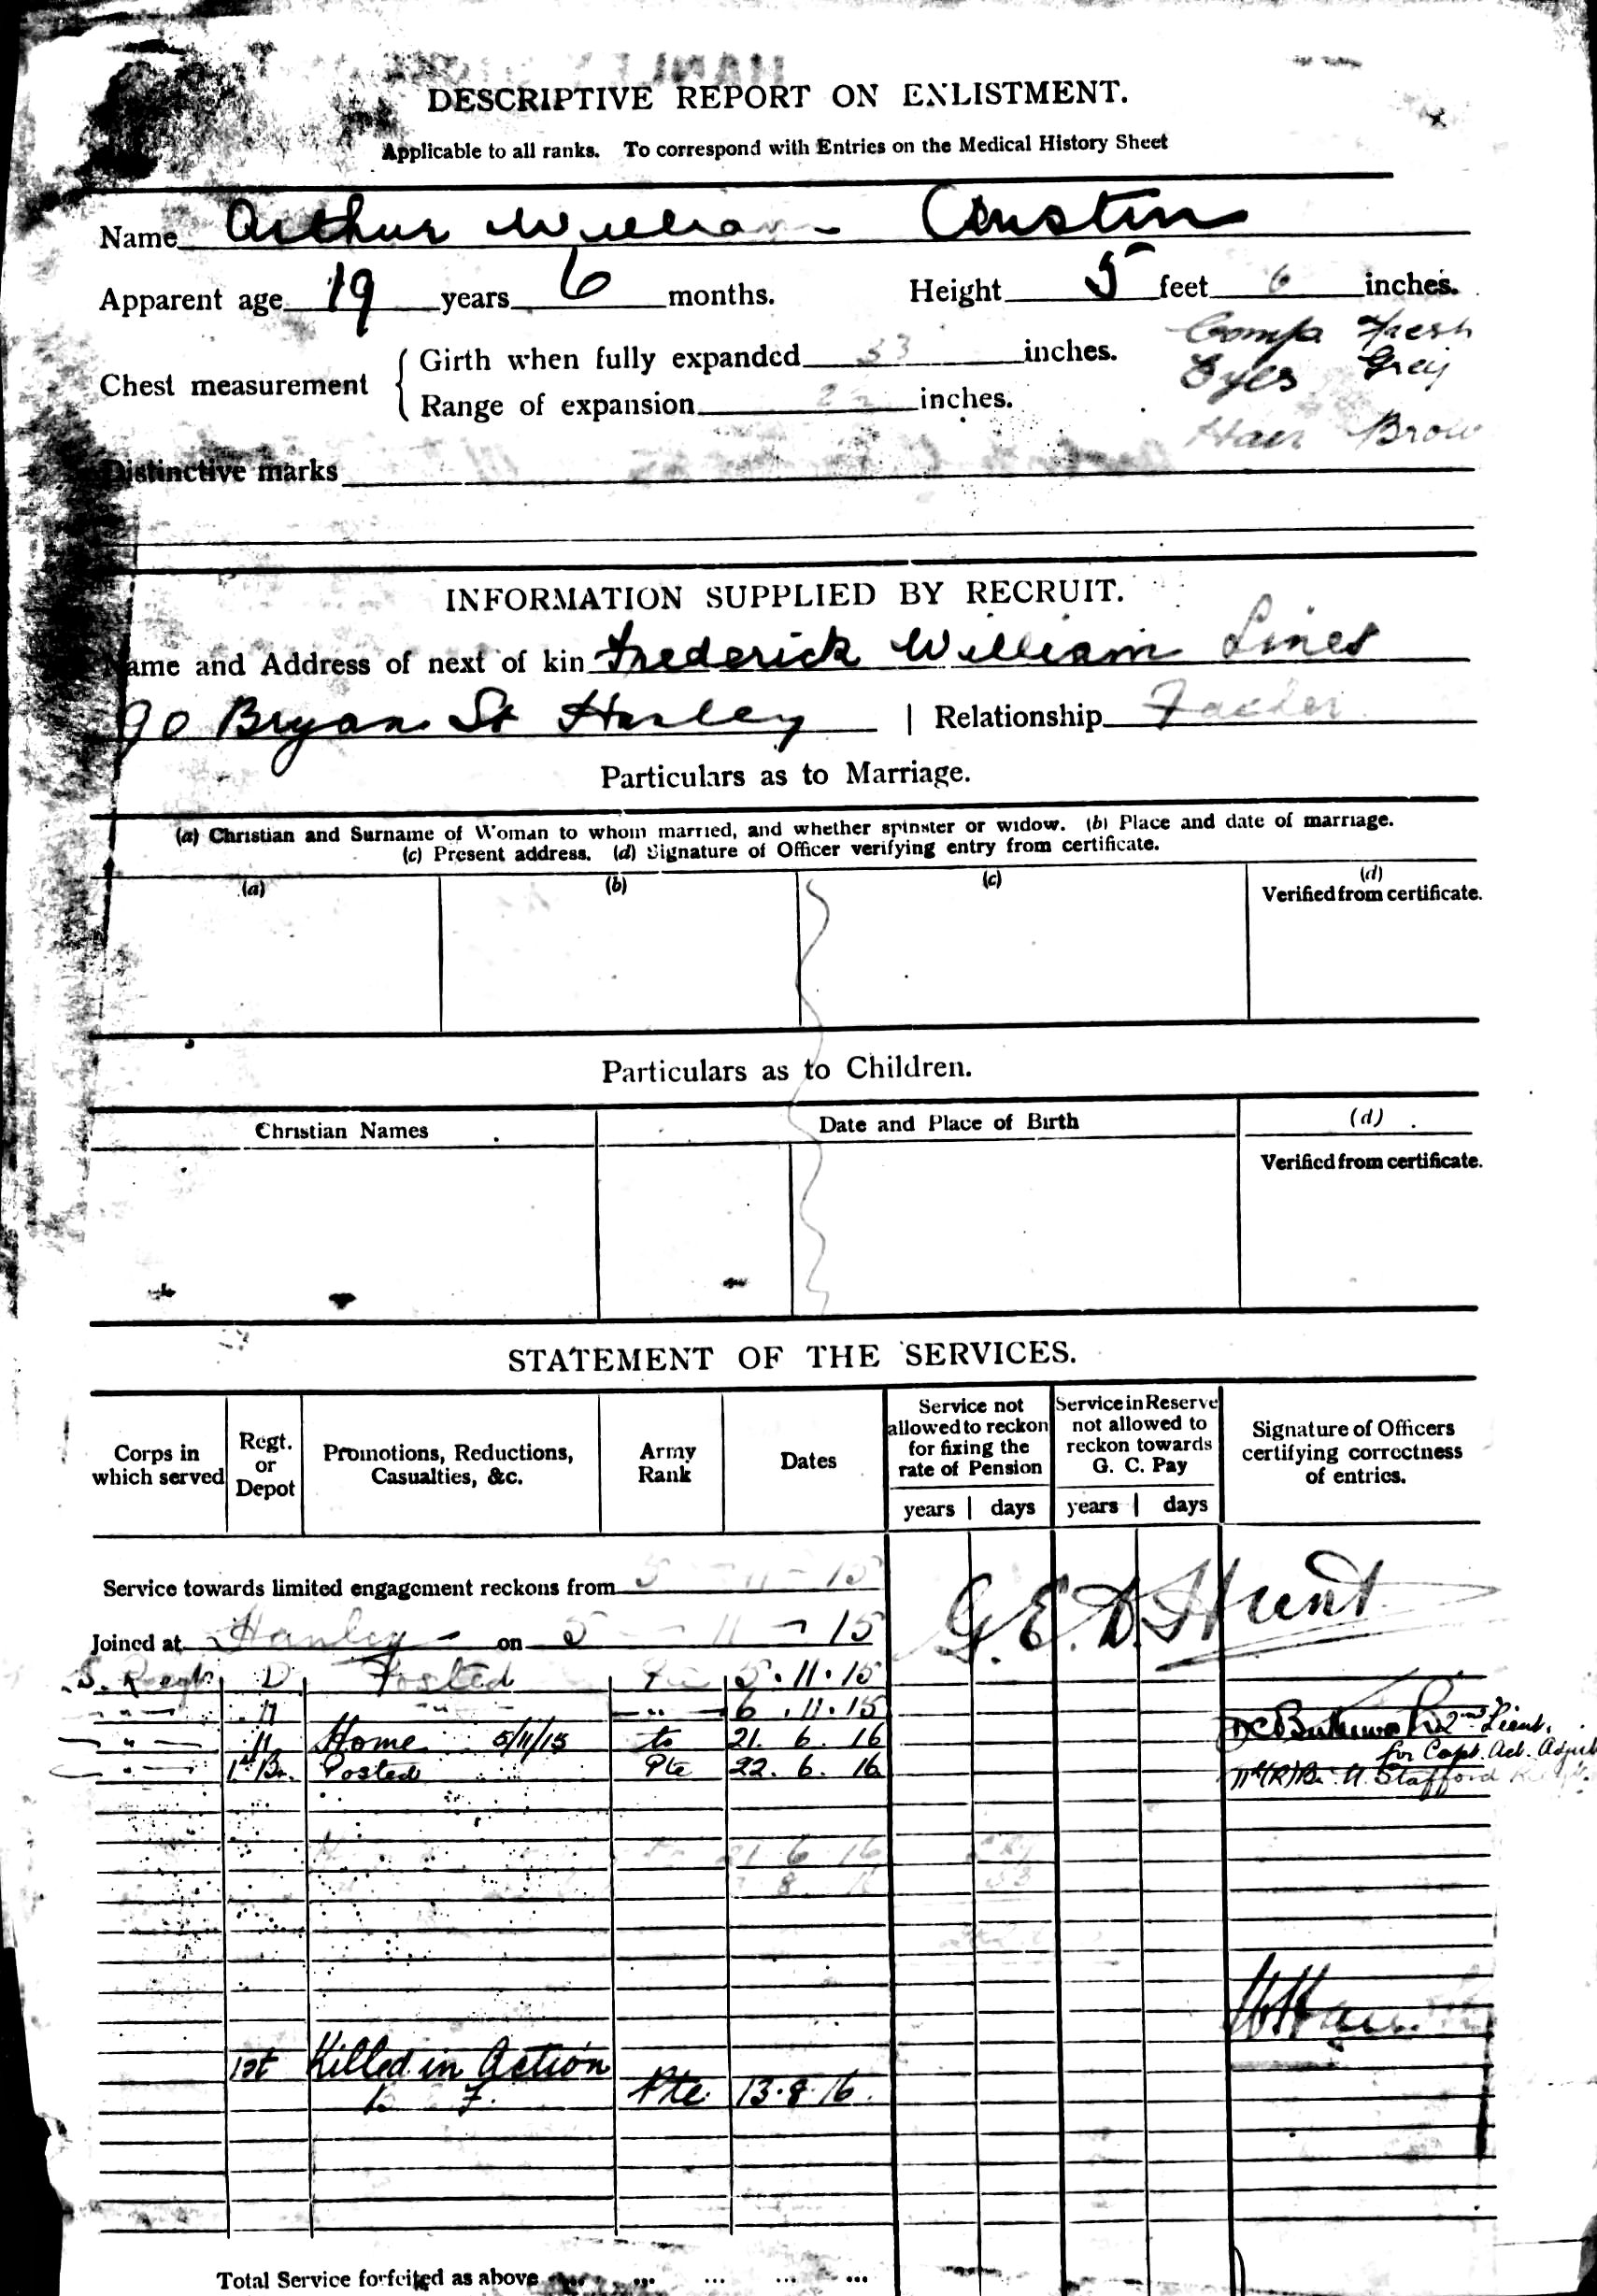 DESCRIPTIVE REPORT ON ENLISTMENT.
Applicable to all ranks. To correspond with Entries on the Medical History Sheet
Name Arthur William Austin
Apparent age 19 years 6 months. Height 5 feet 6 inches.
Comp Fresh
Chest measurement
Girth when fully expanded 33 inches.
Eyes Grey
Range of expansion 2 inches.
Hair Brow
Distinctive marks
INFORMATION SUPPLIED BY RECRUIT.
Name and Address of next of kin Frederick William Lines
90 Bryan St Hanley | Relationship Father
Particulars as to Marriage.
(a) Christian and Surname of Woman to whom married, and whether spinster or widow. (b) Place and date of marriage.
(c) Present address. (d) Signature of Officer verifying entry from certificate.
(a) (b) (c) (d)
Verified from certificate.
Particulars as to Children.
Christian Names Date and Place of Birth (d)
Verified from certificate.
STATEMENT OF THE SERVICES.
Corps in which served
Regt. or Depot
Promotions, Reductions, Casualties, &c.
Army Rank
Dates
Service not allowed to reckon for fixing the rate of Pension
years | days
Service in Reserve not allowed to reckon towards G. C. Pay
years | days
Signature of Officers certifying correctness of entries.
Service towards limited engagement reckons from 5 - 11 - 15
Joined at Hanley on 5 - 11 - 15
G.E.D. Hunt
S. Regt. D Posted 5.11.15
- " - 11 - " - - " - 6.11.15
- " - 11 Home 5/11/15 to 21.6.16
2nd Lieut.
for Capt. Act. Adjut
- " - 1st Bn. Posted Pte 22.6.16
11th(R)Bn. N. Stafford
21 6 16
8
1st Killed in Action
Pte. 13.8.16.
Total Service forfeited as above ... ... ... ... ...